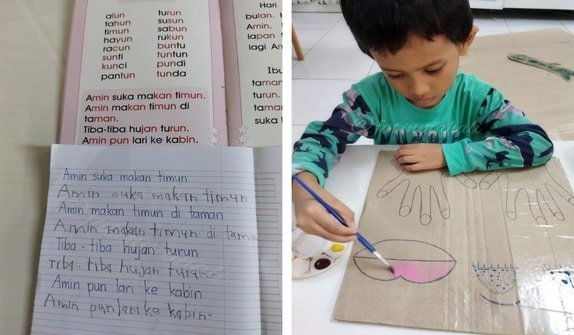 alun turun
tahun susun
timun sabun
hayun rukun
racun buntu
sunti tuntun
kunci pundi
pantun tunda
Amin suka makan timun.
Amin makan timun di
taman.
Tiba-tiba hujan turun.
Amin pun lari ke kabin.
Hari
bulan.
Amin.
lapan
lagi Am
Ibu
taman
turun.
taman
suka
Amin suka makan timun.
Amin suka makan timun
Amin makan timun di taman
Amin makan timun di tama
Tiba-tiba hujan turun
Tiba-tiba hujan turun.
Amin pun lari ke kabin
Amin pun lari ke kabin.